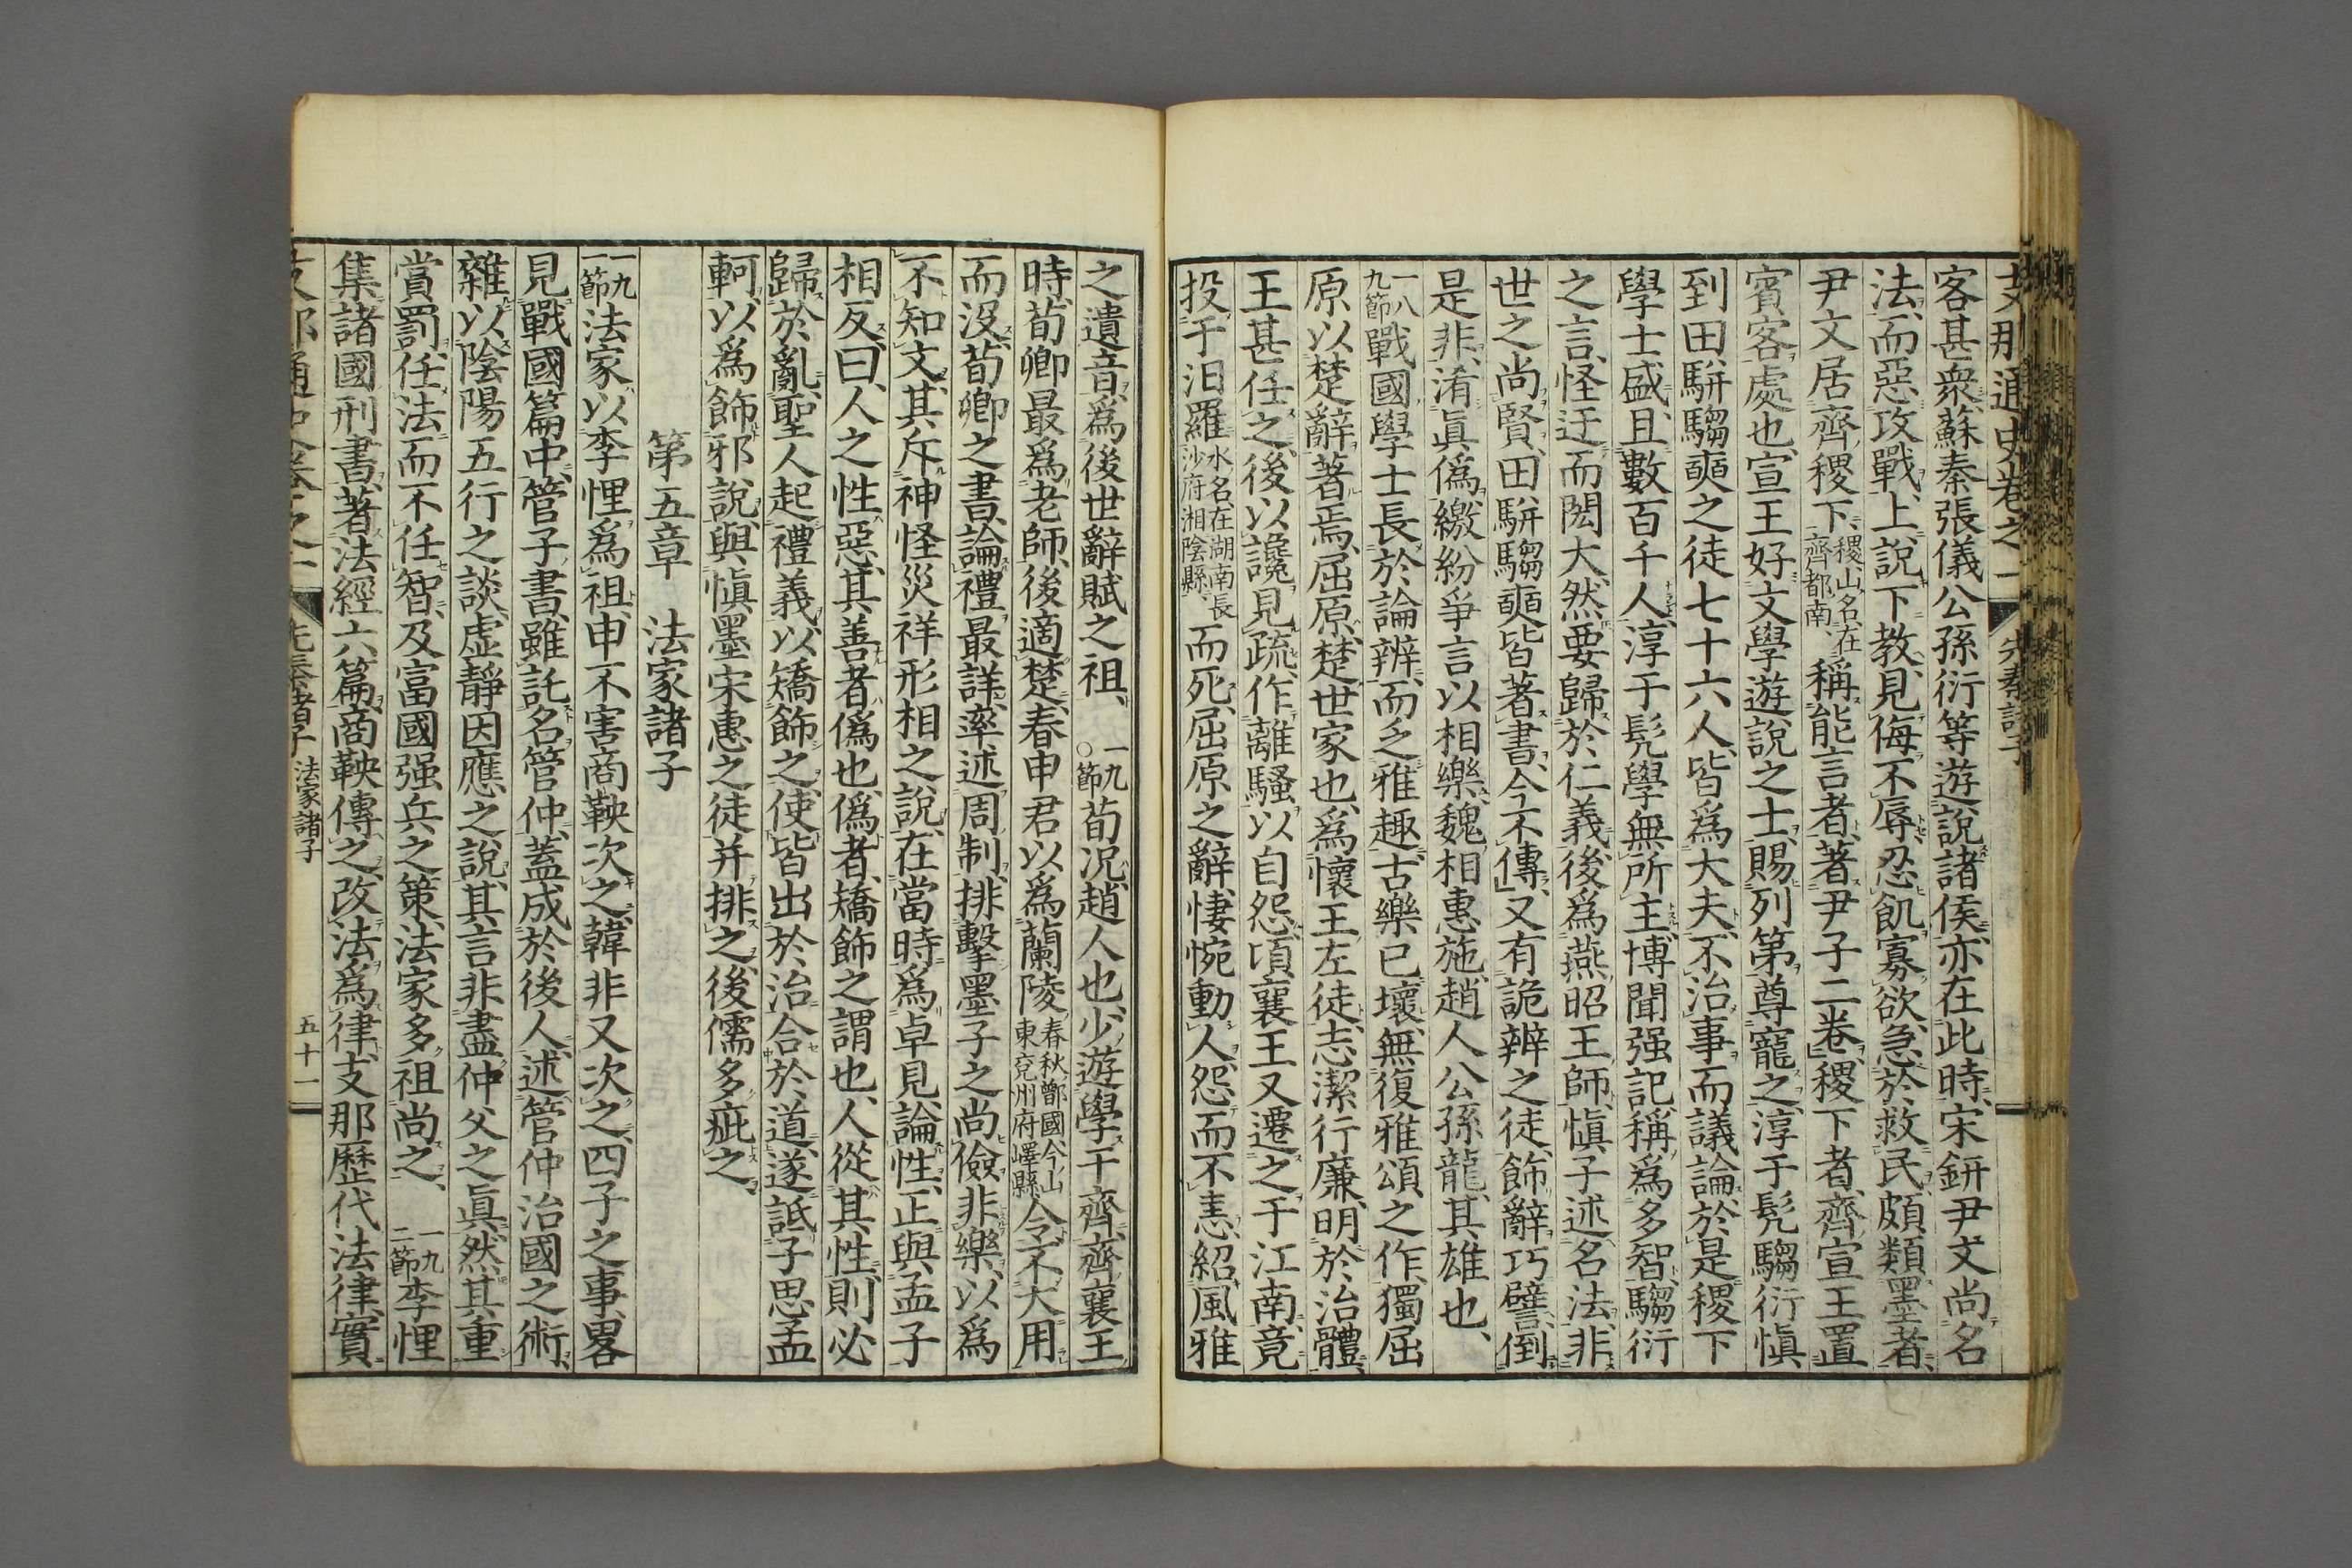 支那通史卷之一 先秦諸子
客甚衆、蘇秦張儀公孫衍等、遊說諸侯、亦在此時、宋鈃尹文尚名
法、而惡攻戰、上說下敎、見侮不辱、忍飢寡欲、急於救民、頗類墨者、
尹文居齊稷下、稷山名、在齊都南、稱能言者、著尹子二卷、稷下者、齊宣王置
賓客處也、宣王好文學遊說之士、賜列第尊寵之、淳于髡騶衍愼
到田駢騶奭之徒七十六人、皆爲大夫、不治事而議論、於是稷下
學士盛、且數百千人、淳于髡學無所主、博聞强記、稱爲多智、騶衍
之言、怪迂而閎大、然要歸於仁義、後爲燕昭王師、愼子述名法、非
世之尚賢、田駢騶奭皆著書、今不傳、又有詭辨之徒、飾辭巧譬、倒
是非、淆眞僞、繳紛爭言以相樂、魏相惠施、趙人公孫龍、其雄也、
一八九節戰國學士長於論辨、而乏雅趣、古樂已壞、無復雅頌之作、獨屈
原以楚辭著焉、屈原、楚世家也、爲懷王左徒、志潔行廉、明於治體、
王甚任之、後以讒見疏、作離騷以自怨、頃襄王又遷之于江南、竟
投于汨羅水名、在湖南長沙府湘陰縣、而死、屈原之辭、悽惋動人、怨而不恚、紹風雅
之遺音、爲後世辭賦之祖、 一九〇節荀况、趙人也、少遊學于齊、齊襄王
時、荀卿最爲老師、後適楚、春申君以爲蘭陵春秋鄫國、今山東兗州府嶧縣、令、不大用
而沒、荀卿之書、論禮最詳、率述周制、排擊墨子之尚儉非樂、以爲
不知文、其斥神怪災祥形相之說、在當時爲卓見、論性、正與孟子
相反、曰、人之性惡、其善者僞也、僞者、矯飾之謂也、人從其性、則必
歸於亂、聖人起禮義、以矯飾之、使皆出於治合於道、遂詆子思孟
軻、以爲飾邪說、與愼墨宋惠之徒并排之、後儒多疵之、
第五章　法家諸子
一九一節法家以李悝爲祖、申不害商鞅次之、韓非又次之、四子之事、畧
見戰國篇中、管子書、雖託名管仲、蓋成於後人、述管仲治國之術、
雜以陰陽五行之談、虛靜因應之說、其言非盡仲父之眞、然其重
賞罰、任法而不任智、及富國强兵之策、法家多祖尚之、 一九二節李悝
集諸國刑書、著法經六篇、商鞅傳之、改法爲律、支那歷代法律、實
支那通史卷之一 先秦諸子 法家諸子 五十一